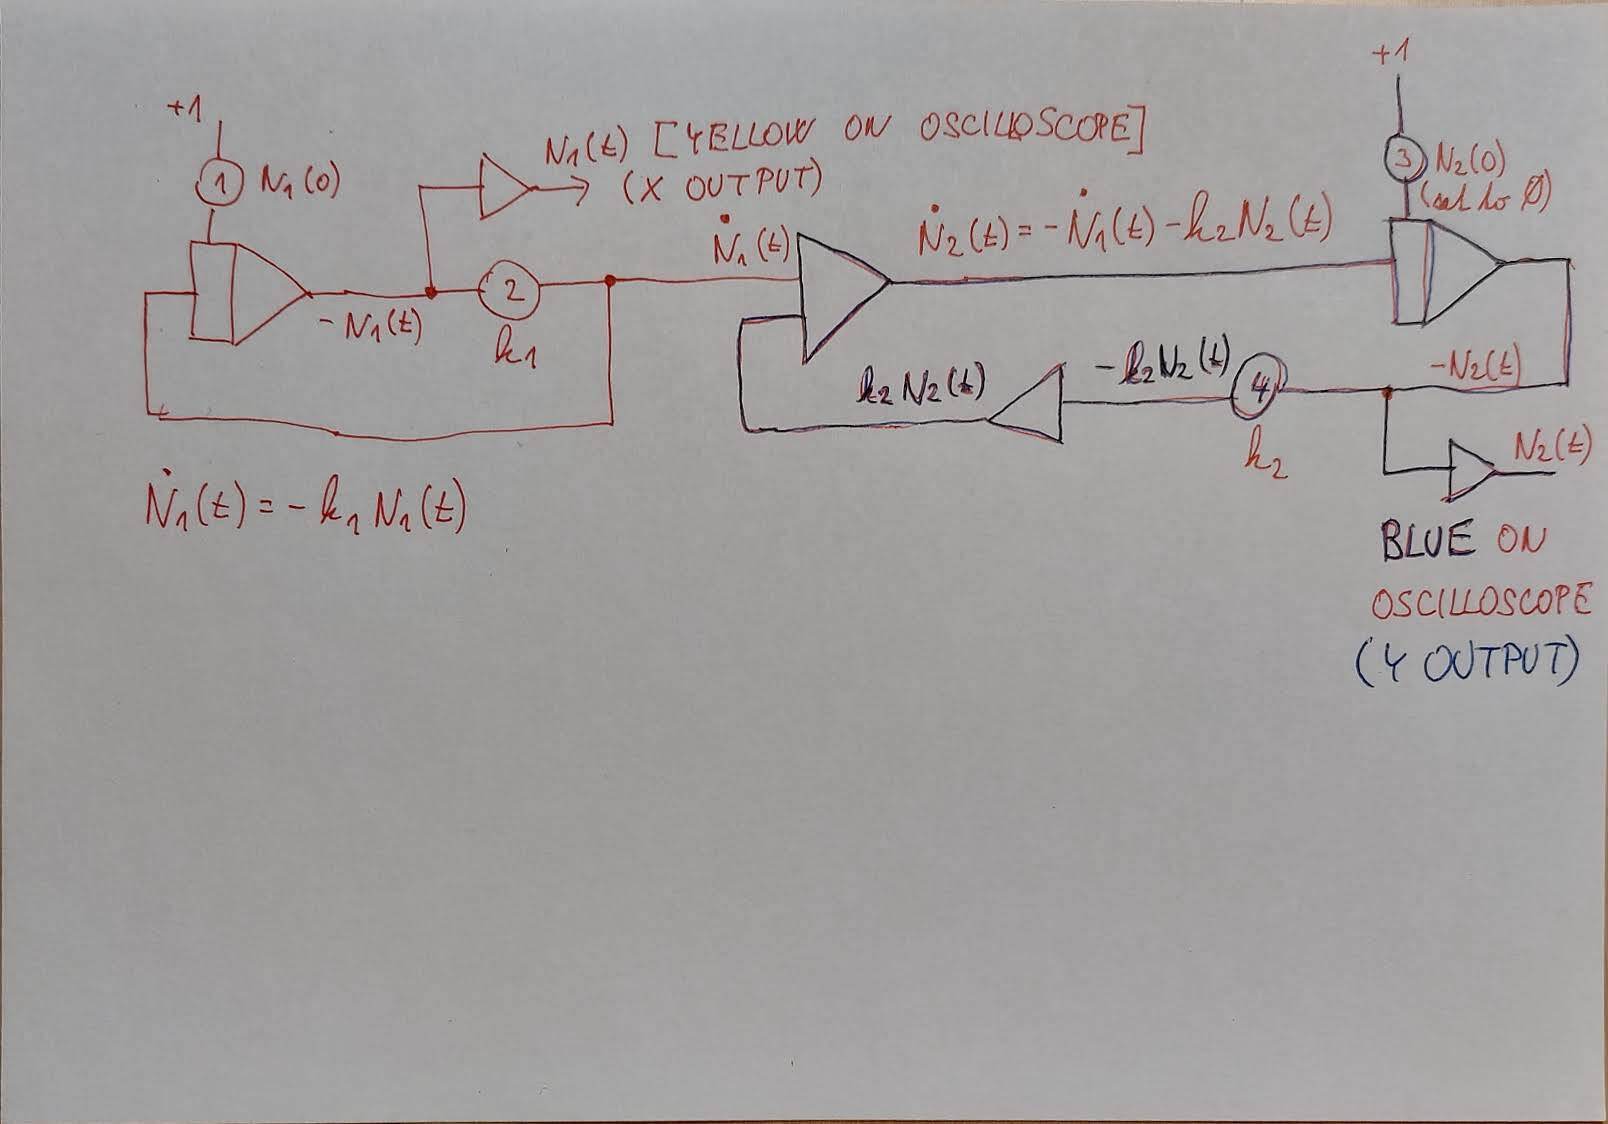 +1
1 N₁(0)
N₁(t) [YELLOW ON OSCILLOSCOPE]
(X OUTPUT)
-N₁(t)
2
k₁
Ṅ₁(t) = - k₁ N₁(t)
Ṅ₁(t)
Ṅ₂(t) = -Ṅ₁(t) - k₂ N₂(t)
+1
3 N₂(0)
(set to Ø)
-N₂(t)
4
k₂
-k₂ N₂(t)
k₂ N₂(t)
N₂(t)
BLUE ON
OSCILLOSCOPE
(Y OUTPUT)